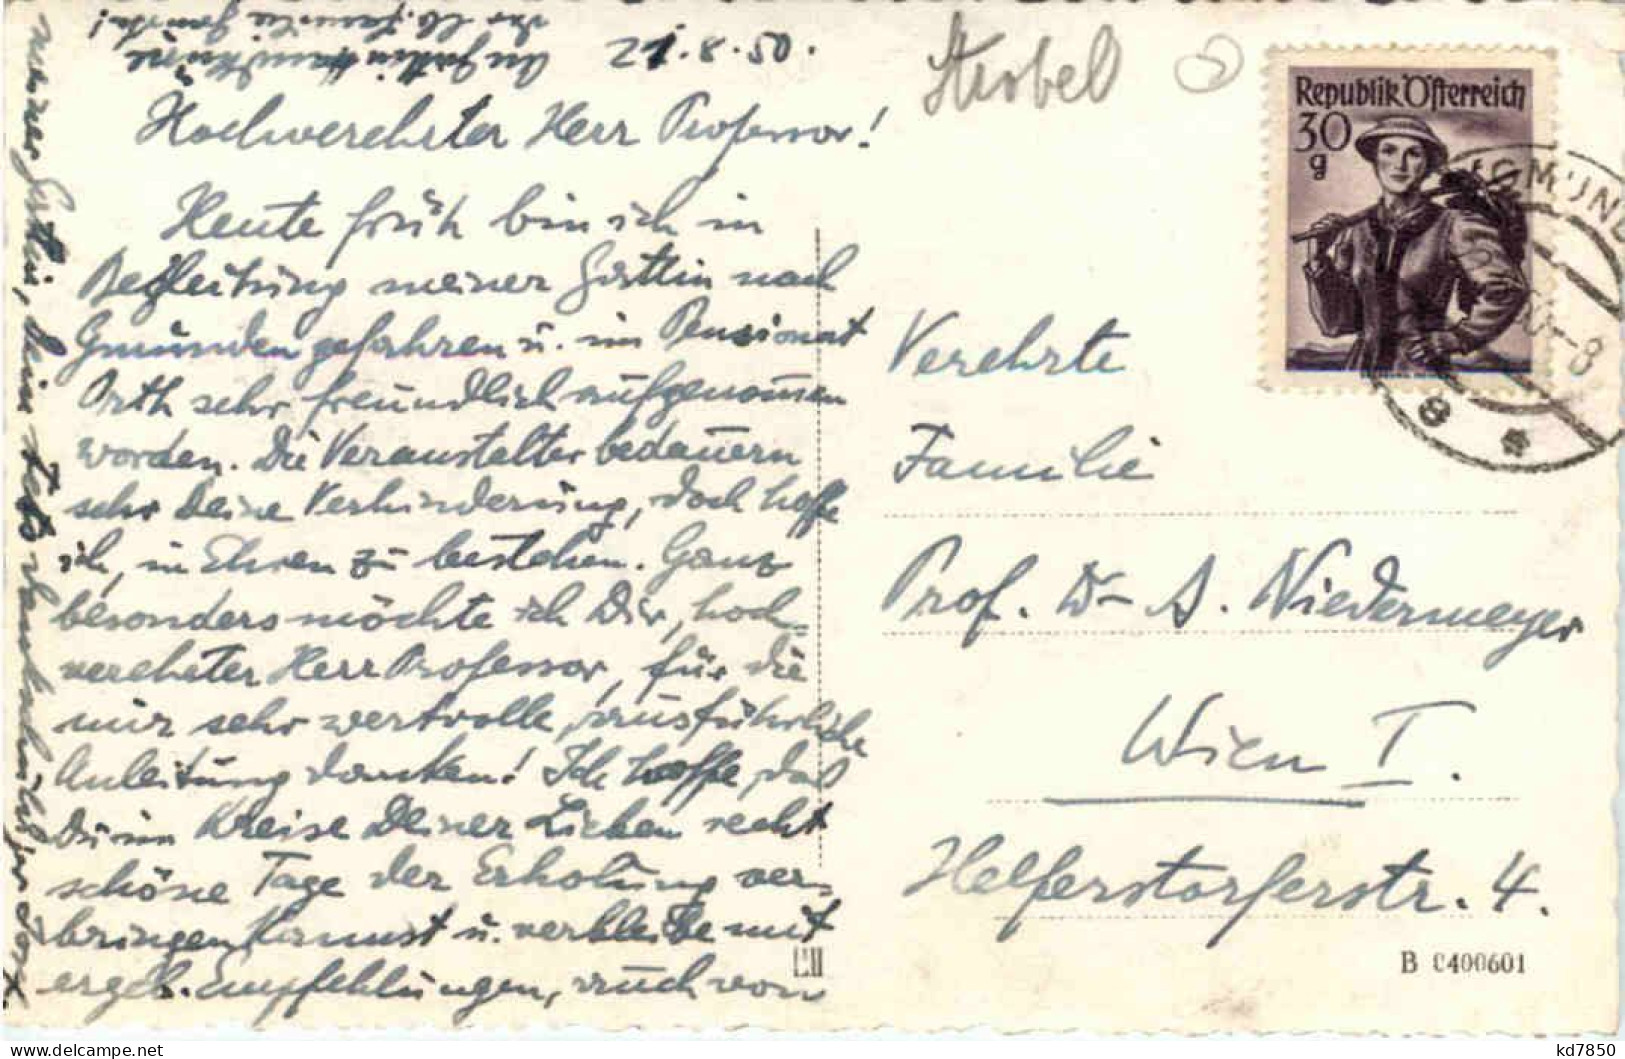 21.8.50.
Hochverehrter Herr Professor!
Heute früh bin ich in
Begleitung meiner Gattin nach
Gmunden gefahren u. im Pensionat
Orth sehr freundlich aufgenommen
worden. Die Veranstalter bedauern
sehr Deine Verhinderung, doch hoffe
ich, in Ehren zu bestehen. Ganz
besonders möchte ich Dir, hoch-
verehrter Herr Professor, für die
mir sehr wertvolle, ausführliche
Anleitung danken! Ich hoffe, daß
Du im Kreise Deiner Lieben recht
schöne Tage der Erholung ver-
bringen kannst u. verbleibe mit
ergeb. Empfehlungen, auch von
meiner Gattin, Dein stets
Strobel
Republik Österreich
30
g
GMUND
8
Verehrte
Familie
Prof. Dr. A. Niedermeyer
Wien I.
Helferstorferstr. 4.
B 0400601
kd7850